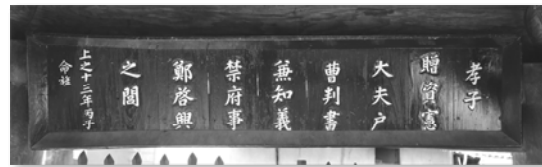 孝子
贈資憲
大夫戶
曹判書
兼知義
禁府事
鄭啓興
之閭
上之十三年丙子
命旌